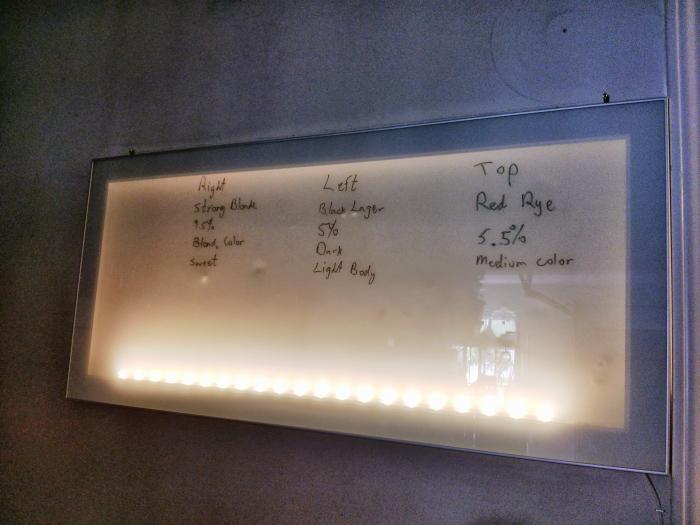 Right
Strong Blonde
9.5%
Blond, Color
Sweet
Left
Black Lager
5%
Dark
Light Body
Top
Red Rye
5.5%
Medium color